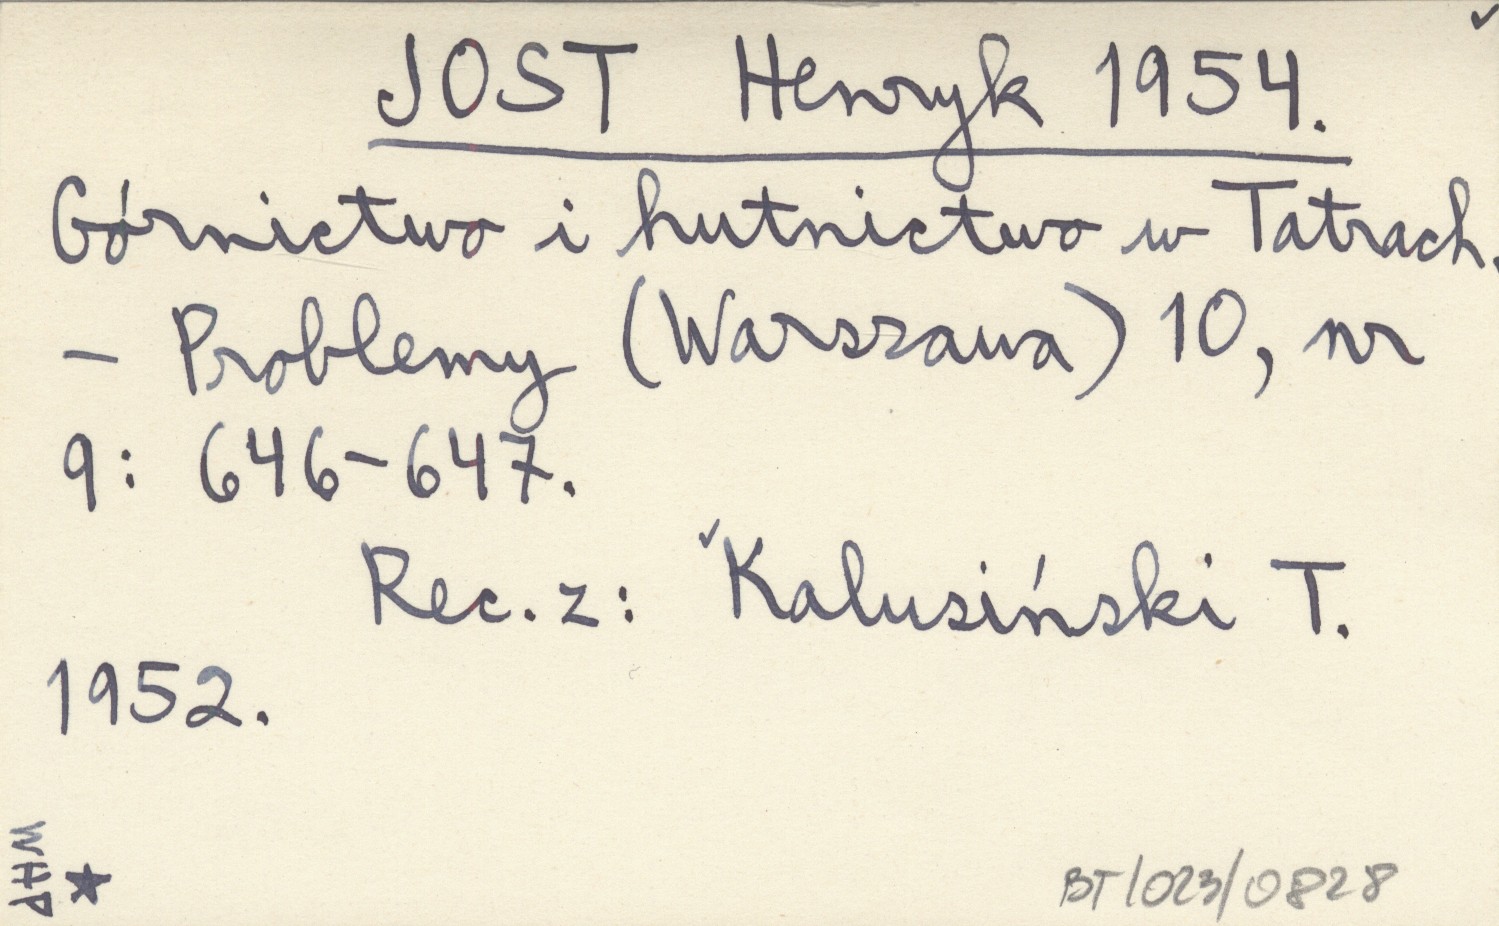 JOST Henryk 1954.
Górnictwo i hutnictwo w Tatrach.
- Problemy (Warszawa) 10, nr
9: 646-647.
Rec. z: Kalusiński T.
1952.
WHP
BT/023/0828